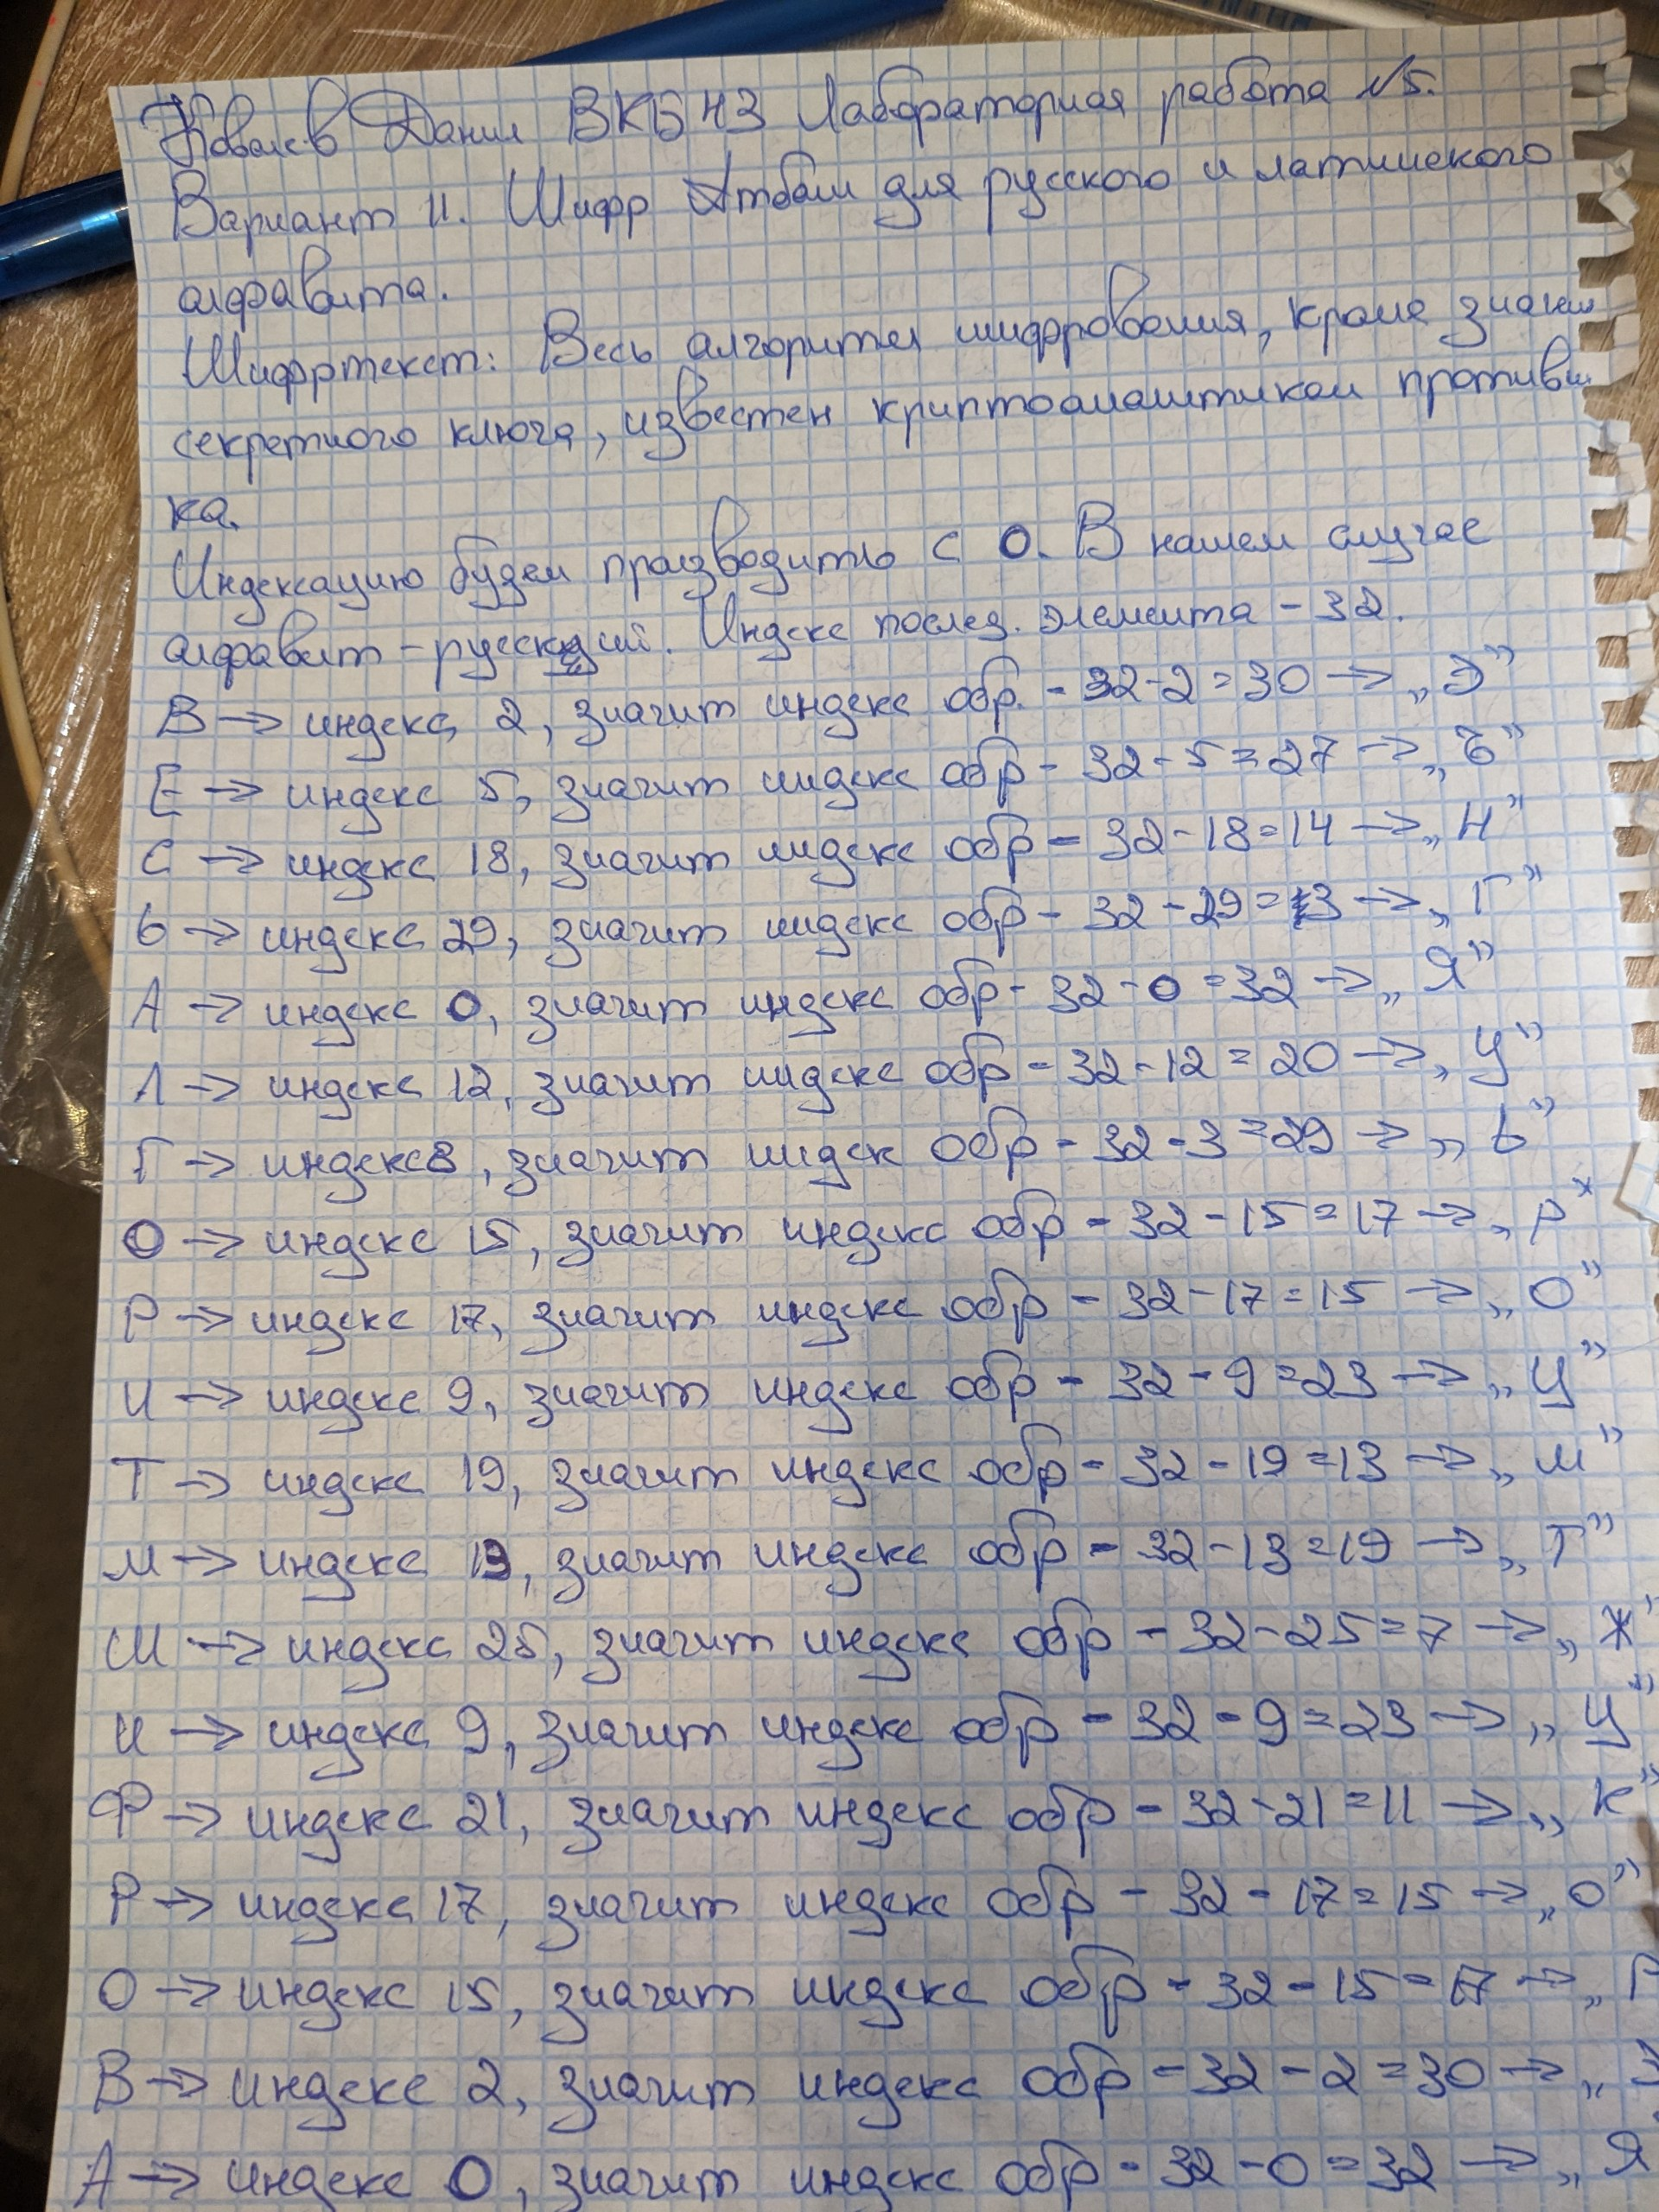 Ковалев Данил ВКБ43 Лабораторная работа №5.
Вариант 11. Шифр Атбаш для русского и латинского
алфавита.
Шифртекст: Весь алгоритм шифрования, кроме значени
секретного ключа, известен криптоаналитикам противни
ка.
Индексацию будем производить с 0. В нашем случае
алфавит - русский. Индекс послед. элемента - 32.
В → индекс 2, значит индекс обр. - 32-2=30 → „Э”
Е → индекс 5, значит индекс обр - 32-5=27 → „Ъ”
С → индекс 18, значит индекс обр - 32-18=14 → „Н”
Ь → индекс 29, значит индекс обр - 32-29=3 → „Г”
А → индекс 0, значит индекс обр - 32-0=32 → „Я”
Л → индекс 12, значит индекс обр - 32-12=20 → „У”
Г → индекс 3, значит индек обр - 32-3=29 → „Ь”
О → индекс 15, значит индекс обр - 32-15=17 → „Р”
Р → индекс 17, значит индекс обр - 32-17=15 → „О”
И → индекс 9, значит индекс обр - 32-9=23 → „Ц”
Т → индекс 19, значит индекс обр - 32-19=13 → „М”
М → индекс 13, значит индекс обр - 32-13=19 → „Т”
Ш → индекс 25, значит индекс обр - 32-25=7 → „Ж”
И → индекс 9, значит индекс обр - 32-9=23 → „Ц”
Ф → индекс 21, значит индекс обр - 32-21=11 → „К”
Р → индекс 17, значит индекс обр - 32-17=15 → „О”
О → индекс 15, значит индекс обр - 32-15=17 → „Р
В → индекс 2, значит индекс обр - 32-2=30 → „Э
А → индекс 0, значит индекс обр - 32-0=32 → „Я